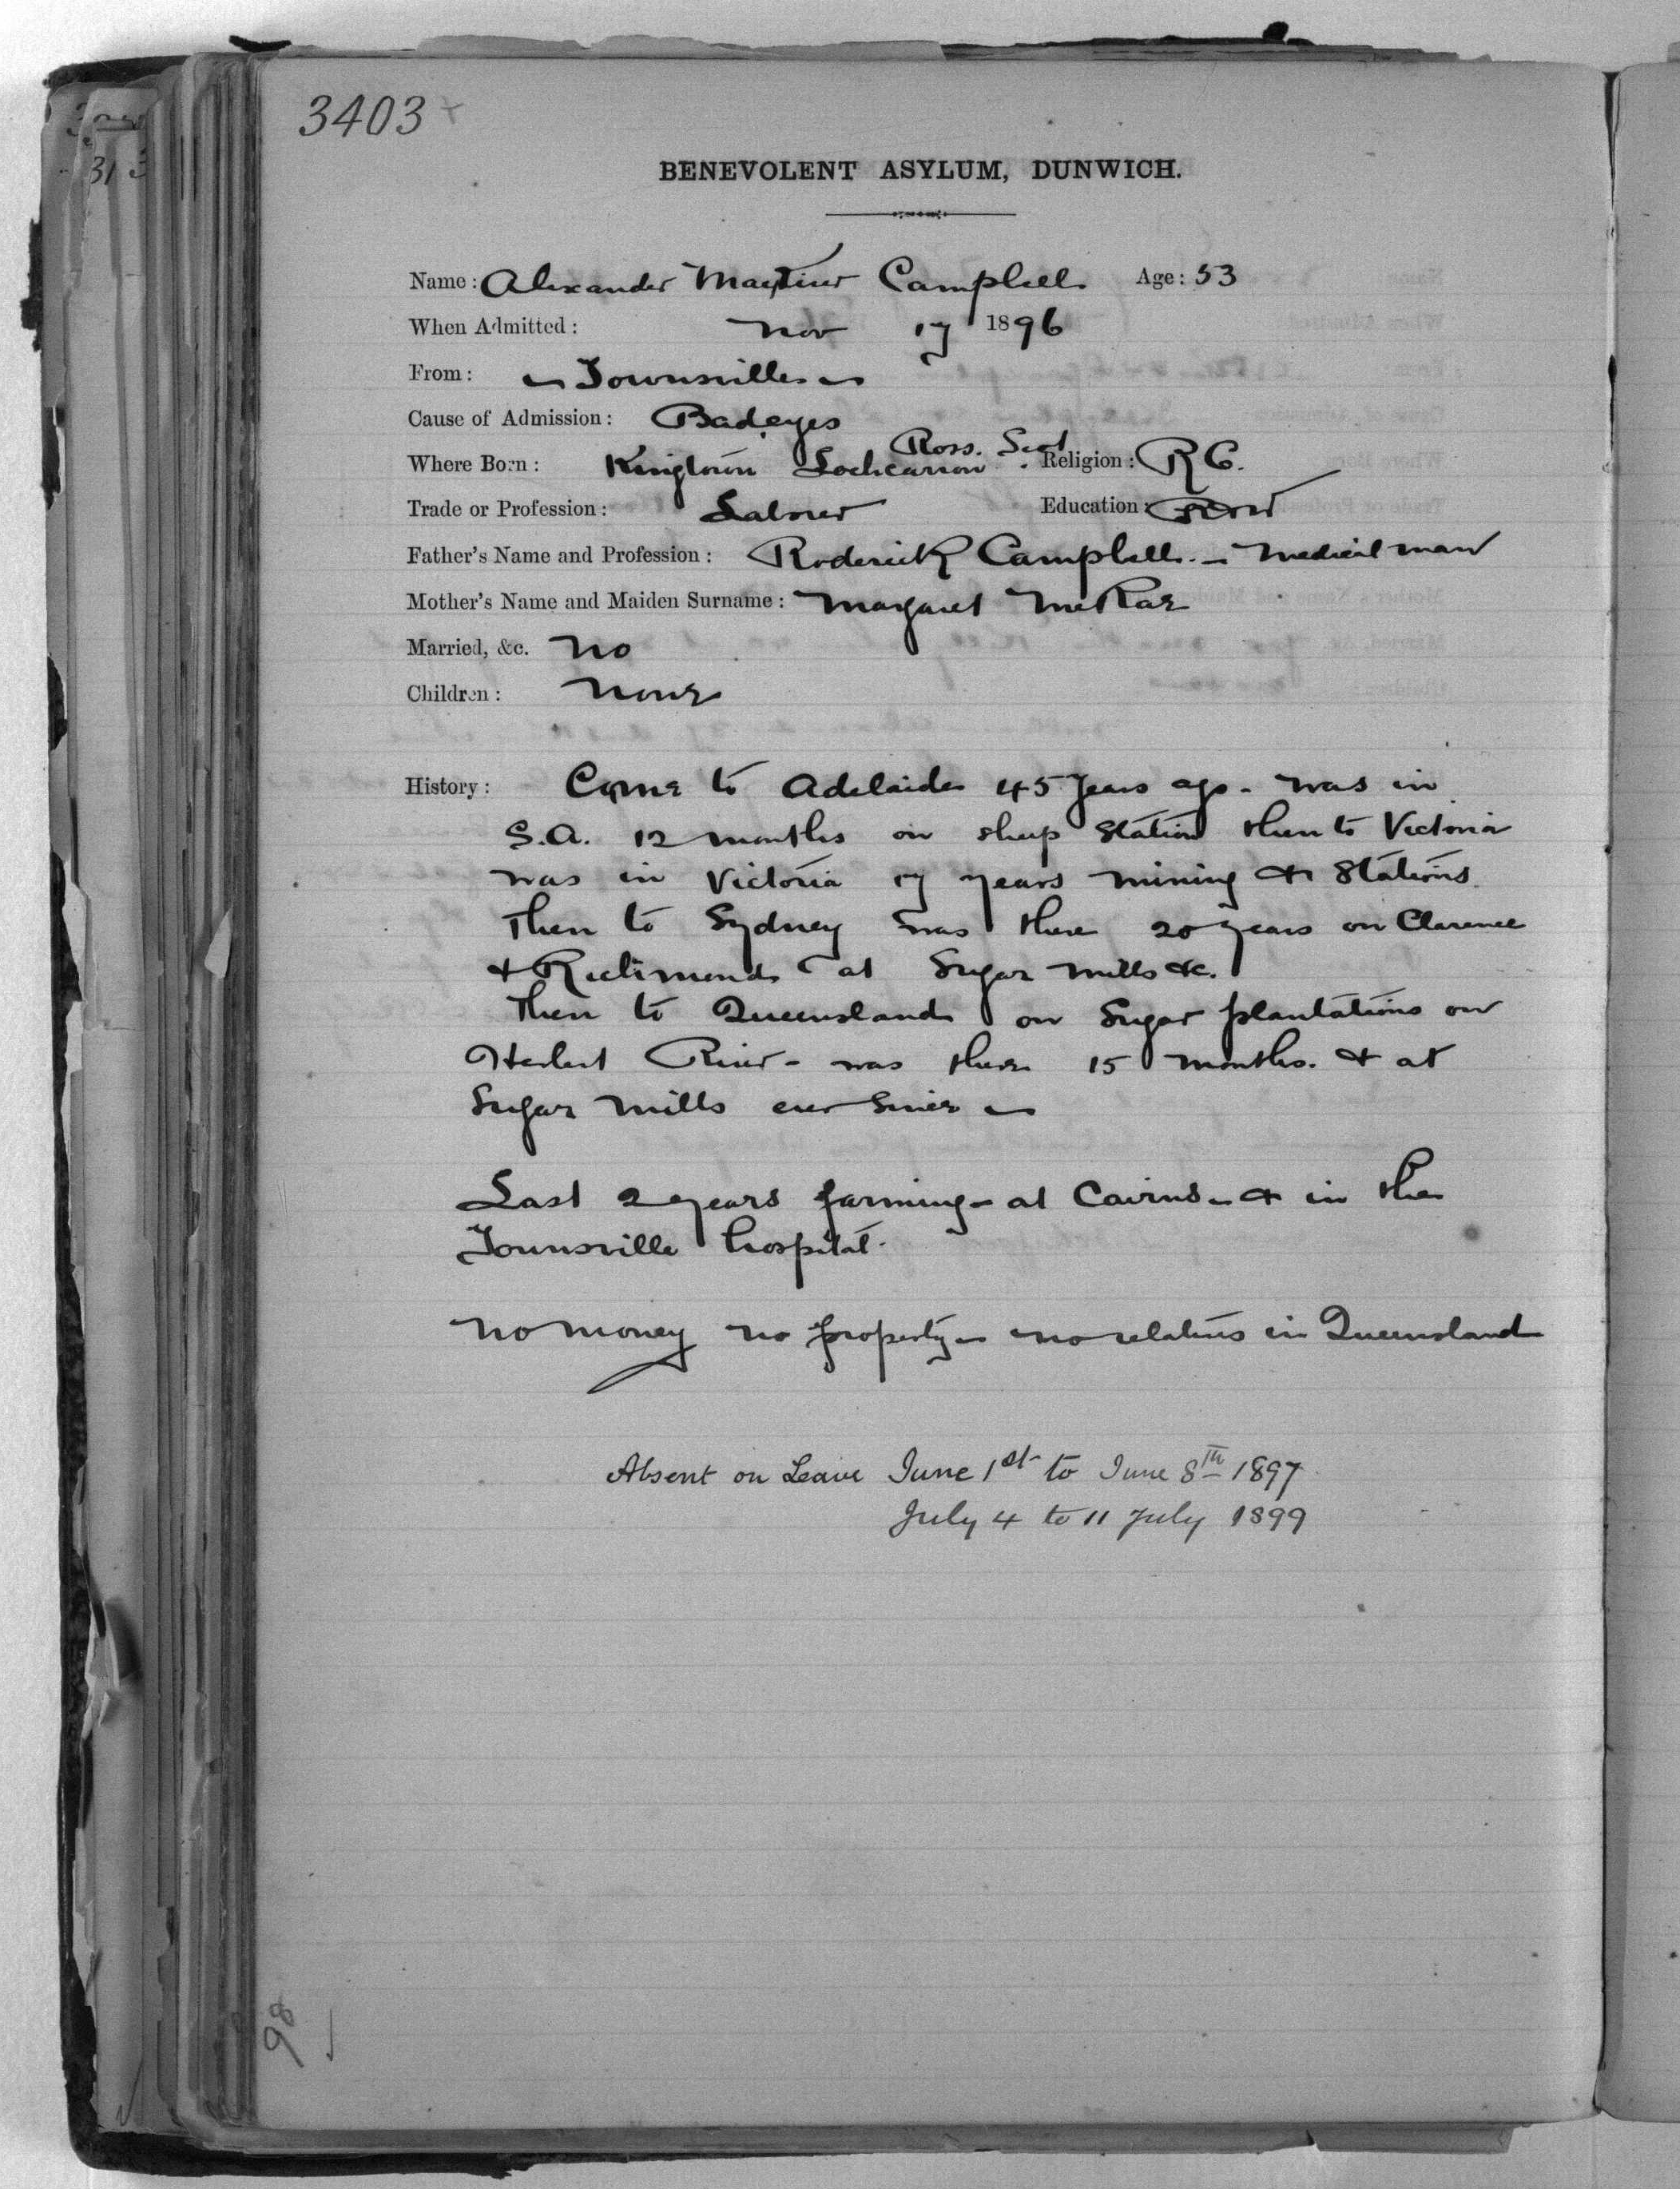 3403
BENEVOLENT ASYLUM, DUNWICH.
Name: Alexander Campbell Age: 53
When Admitted: Nov 17 1896
From: Townsville
Cause of Admission: Bad eyes
Ross. Scot
Where Born: Lochcarron Religion: RC.
Trade or Profession: Labourer Education: RW
Father's Name and Profession: Roderick Campbell - Medical man
Mother's Name and Maiden Surname: Margaret McRae
Married, &c. No
Children: None
History: Came to Adelaide 45 years ago - was in
S.A. 12 months on sheep station then to Victoria
was in Victoria 17 years mining & Stations.
Then to Sydney was there 20 years on Clarence
& Richmond at Sugar Mills &c.
Then to Queensland on Sugar plantations on
Herbert River - was there 15 months. & at
Sugar Mills ever since
Last 2 years farming - at Cairns - & in the
Townsville hospital.
No money no property - no relatives in Queensland
Absent on Leave June 1st to June 8th 1897
July 4 to 11 July 1899
98